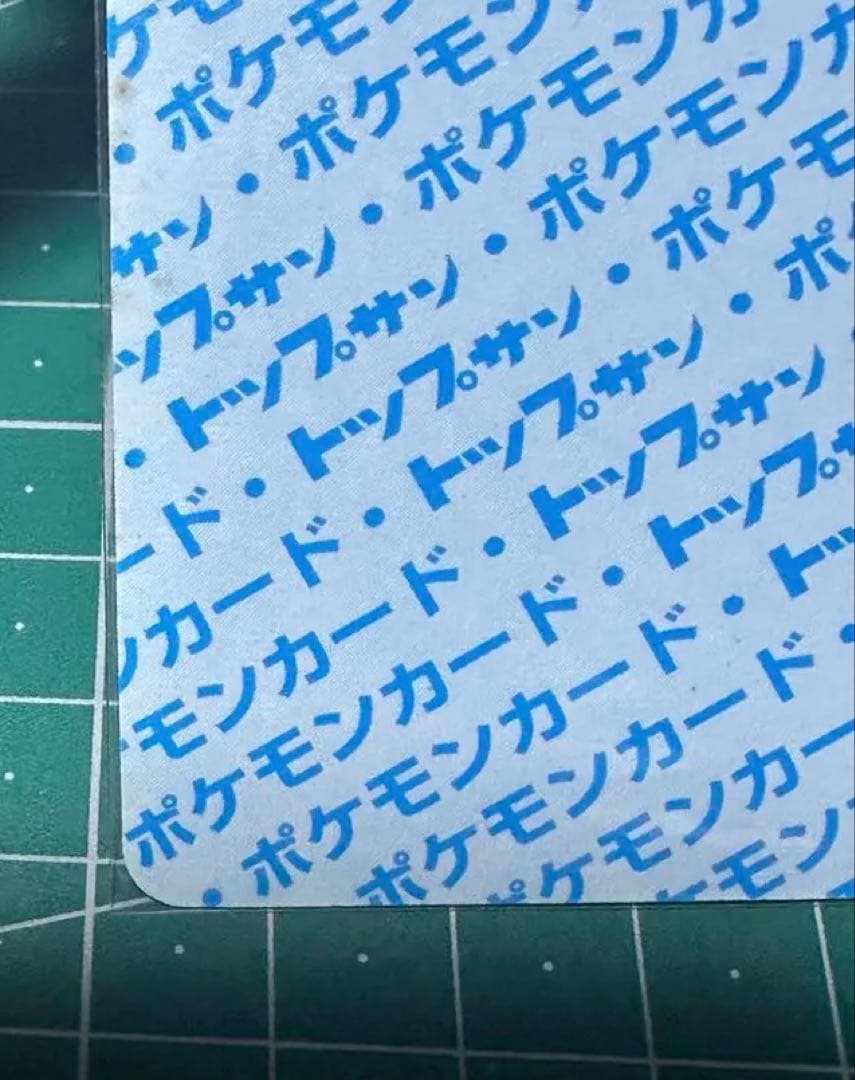 ケモ
・ポケモン
サン・ポケモン
ップサン・ポケモンカ
・トップサン・ポケモンカ
ード・トップサン・ポケモ
ンカード・トップサン・ポ
モンカード・トップサン
ポケモンカード・トップサ
・ポケモンカード・トッ
ポケモンカード・
ポケモンカー
ケモン